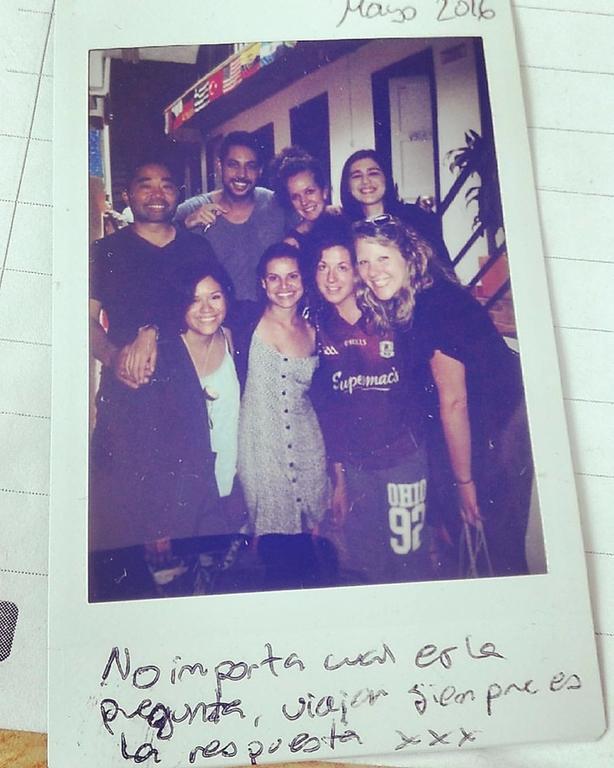 Mayo 2016
O'NEILLS
Supermac's
OHIO
92
No importa cual es la
pregunta, viajar siempre es
la respuesta xxx